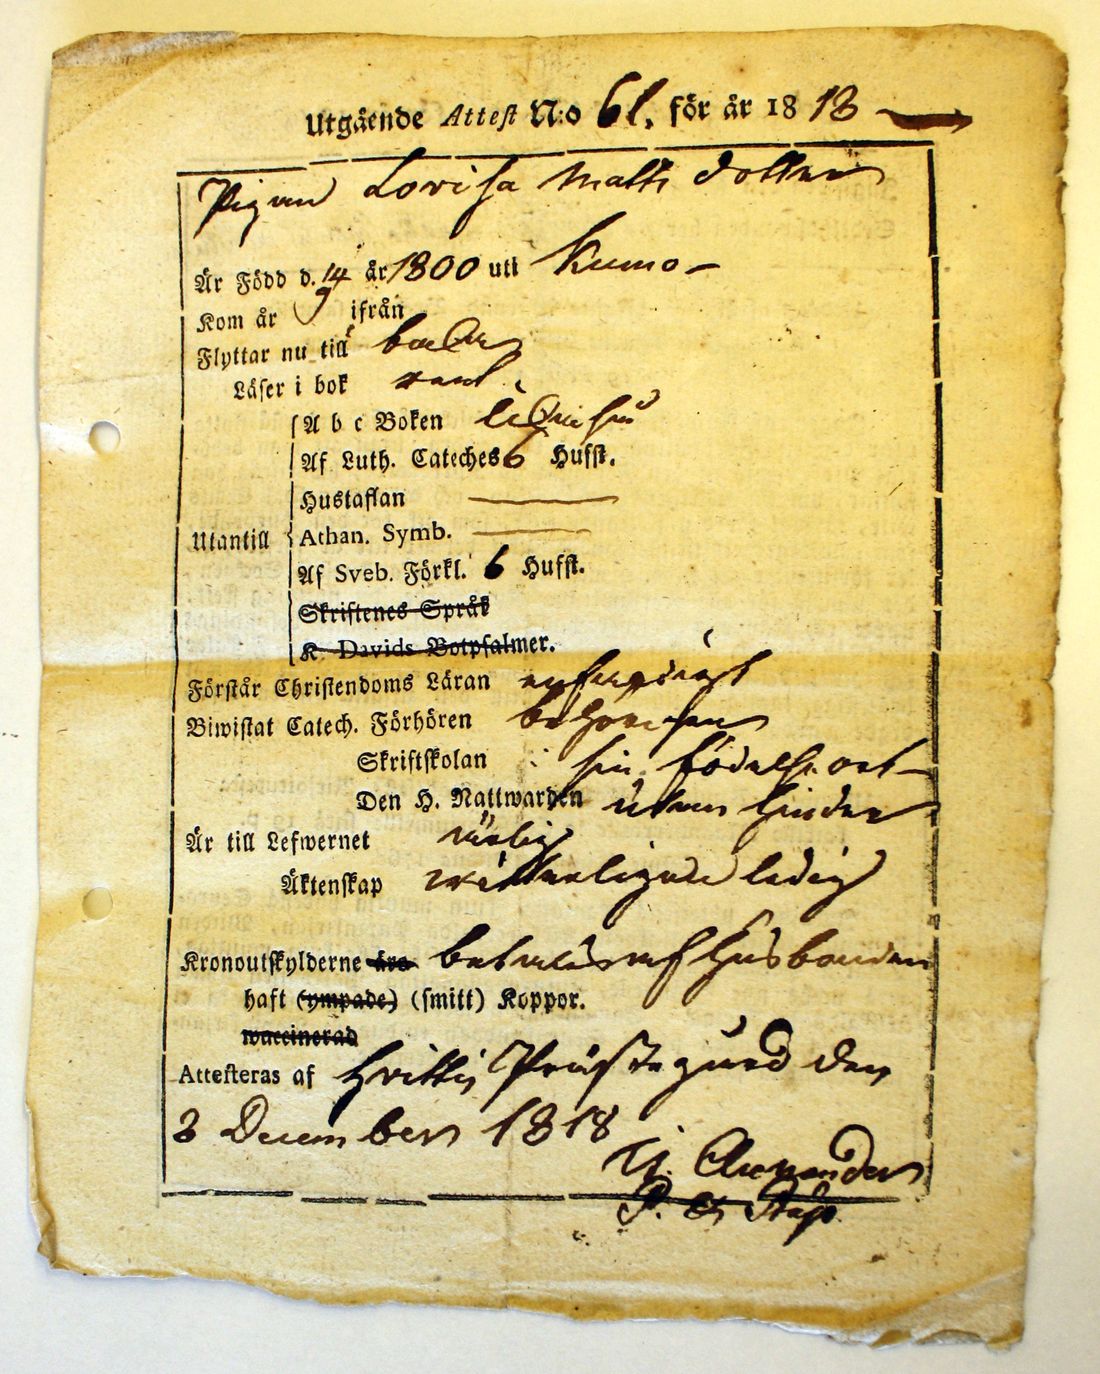 Utgående Attest N:o 61. för år 18 18
Pigan Lovisa Matts dotter
Är Född d. 14/9 år 1800 uti Kumo
Kom år ifrån
Flyttar nu till
Läser i bok rent
A b c Boken
Af Luth. Cateches 6 Hufst.
Hustaflan —
Utantill Athan. Symb. —
Af Sveb. Förkl. 6 Hufst.
Skriftenes Språk
K. Davids Botpsalmer.
Förstår Christendoms Läran
Biwistat Catech. Förhören
Skriftskolan i sin födelse ort
Den H. Nattwarden utan hinder
Är till Lefwernet
Äktenskap witterligen ledig
Kronoutskylderne äro betalas af Husbonden
haft (ympade) (smitt) Koppor.
waccinerad
Attesteras af Hvittis Prästegård den
3 December 1818